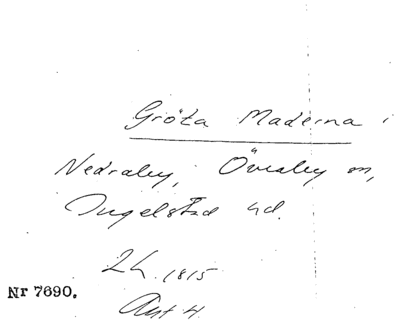 Gröta Maderna i
Nedraby, Övraby sn,
Ingelstad hd.
2 h. 1815
Nr 7690.